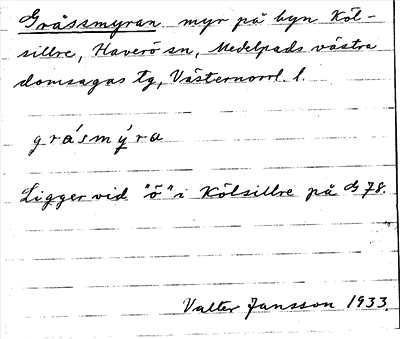 Gråssmyran myr på byn Köl-
sillre, Haverö sn, Medelpads västra
domsagas tg, Västernorrl. l.
grásmỳra
Ligger vid "ö" i Kölsillre på G 78.
Valter Jansson 1933.